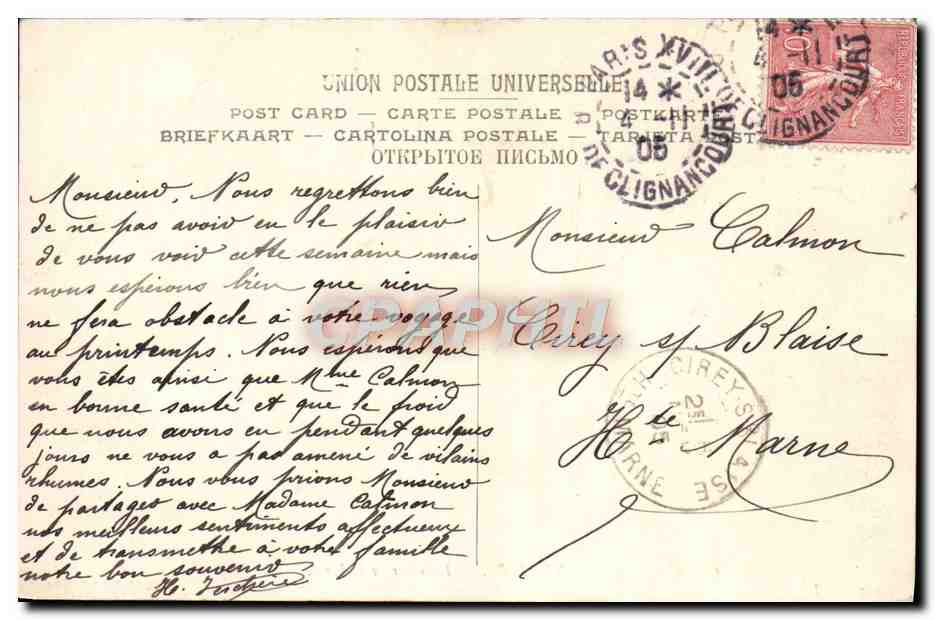 UNION POSTALE UNIVERSELLE
POST CARD — CARTE POSTALE — POSTKARTE
BRIEFKAART — CARTOLINA POSTALE — TARJETA POSTAL
ОТКРЫТОЕ ПИСЬМО
PARIS XVIII
14 *
4 - 11
05
R. DE CLIGNANCOURT
14 *
4 - 11
05
R. DE CLIGNANCOURT
10
Monsieur, Nous regrettons bien
de ne pas avoir eu le plaisir
de vous voir cette semaine mais
nous espérons bien que rien
ne fera obstacle à votre voyage
au printemps. Nous espérons que
vous êtes ainsi que Mme Calmon
en bonne santé et que le froid
que nous avons eu pendant quelques
jours ne vous a pas amené de vilains
rhumes. Nous vous prions Monsieur
de partager avec Madame Calmon
nos meilleurs sentiments affectueux
et de transmettre à votre famille
notre bon souvenir
H.
Monsieur Calmon
Cirey s/ Blaise
Hte Marne
CIREY-S-BLAISE
Hte MARNE
05
CPAPHIL